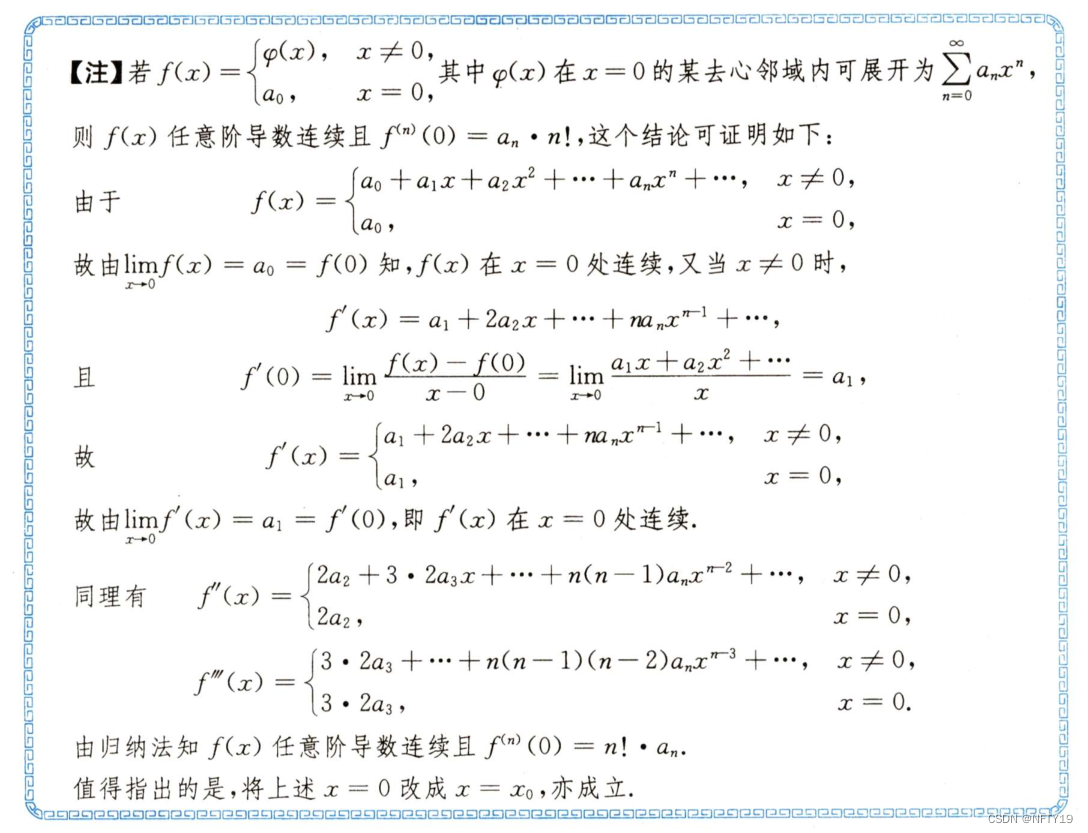 【注】若 f(x) = { φ(x), x ≠ 0, a₀, x = 0, 其中 φ(x) 在 x = 0 的某去心邻域内可展开为 ∑_{n=0}^{∞} aₙxⁿ,
则 f(x) 任意阶导数连续且 f⁽ⁿ⁾(0) = aₙ · n!,这个结论可证明如下:
由于 f(x) = { a₀ + a₁x + a₂x² + ⋯ + aₙxⁿ + ⋯, x ≠ 0, a₀, x = 0,
故由 lim_{x→0} f(x) = a₀ = f(0) 知, f(x) 在 x = 0 处连续,又当 x ≠ 0 时,
f′(x) = a₁ + 2a₂x + ⋯ + naₙxⁿ⁻¹ + ⋯,
且 f′(0) = lim_{x→0} (f(x) − f(0))/(x − 0) = lim_{x→0} (a₁x + a₂x² + ⋯)/x = a₁,
故 f′(x) = { a₁ + 2a₂x + ⋯ + naₙxⁿ⁻¹ + ⋯, x ≠ 0, a₁, x = 0,
故由 lim_{x→0} f′(x) = a₁ = f′(0),即 f′(x) 在 x = 0 处连续.
同理有 f″(x) = { 2a₂ + 3 · 2a₃x + ⋯ + n(n − 1)aₙxⁿ⁻² + ⋯, x ≠ 0, 2a₂, x = 0,
f‴(x) = { 3 · 2a₃ + ⋯ + n(n − 1)(n − 2)aₙxⁿ⁻³ + ⋯, x ≠ 0, 3 · 2a₃, x = 0.
由归纳法知 f(x) 任意阶导数连续且 f⁽ⁿ⁾(0) = n! · aₙ.
值得指出的是,将上述 x = 0 改成 x = x₀,亦成立.
CSDN @NFTY19